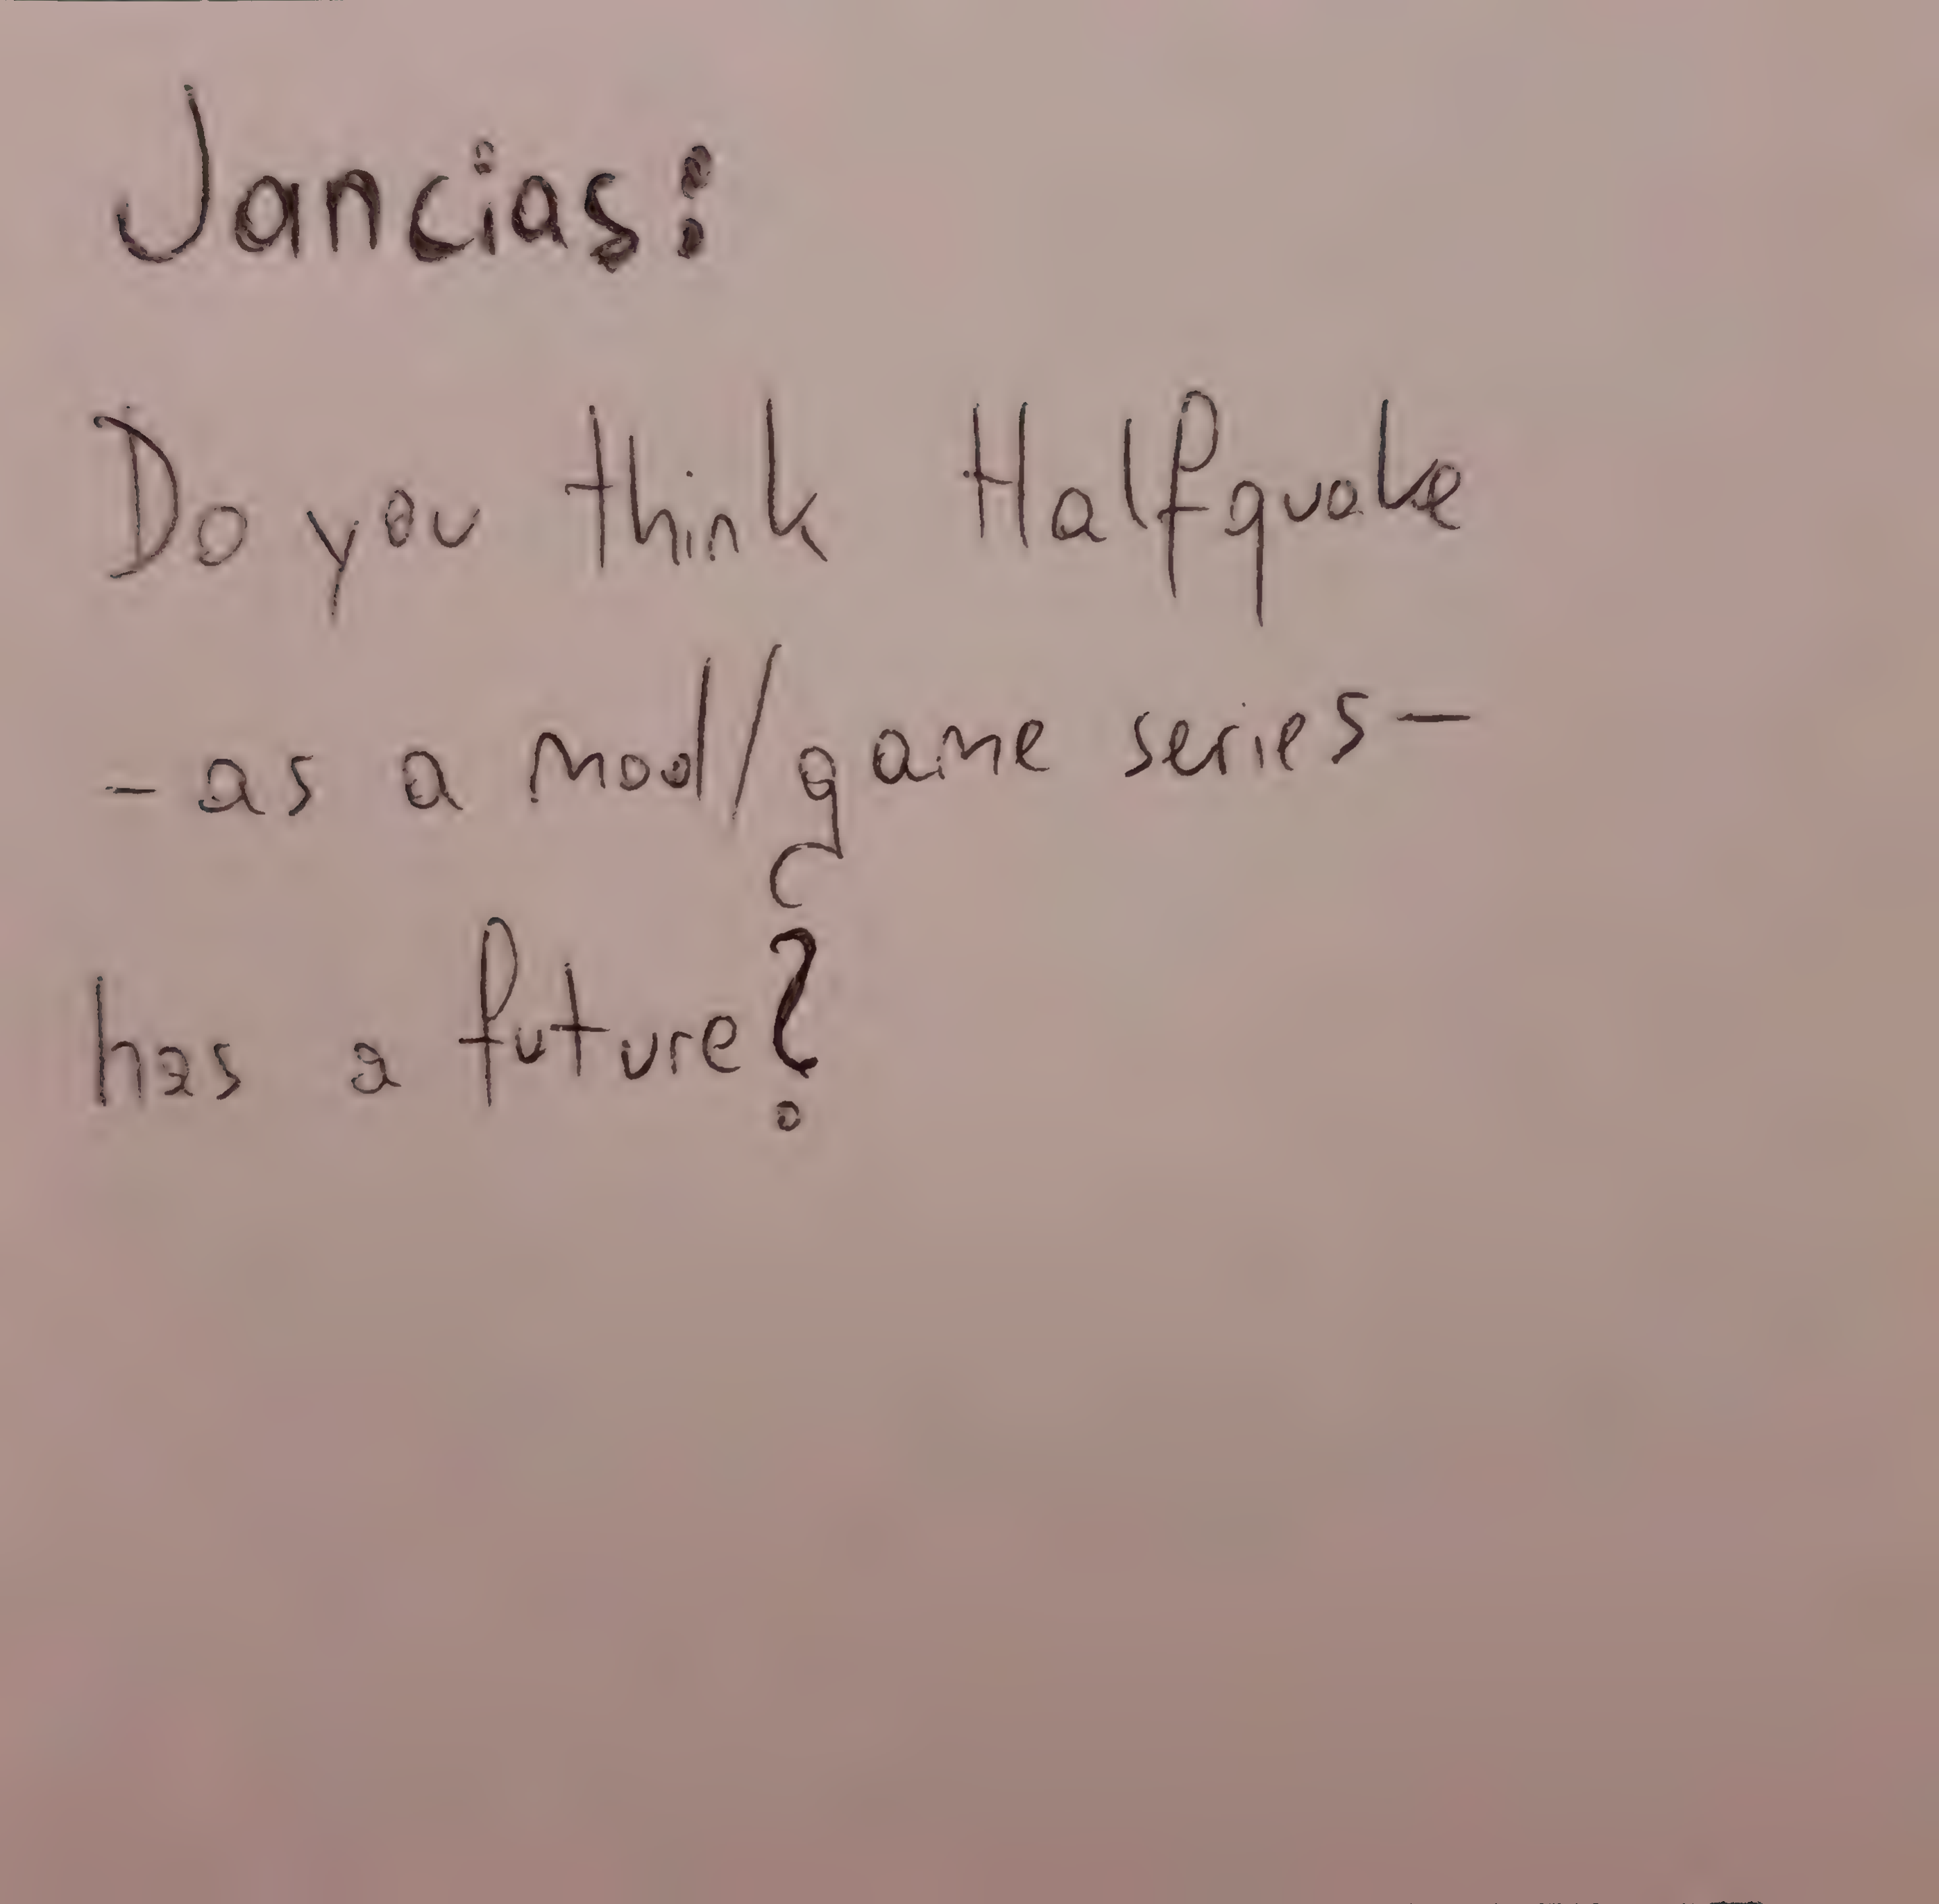 Jancias:
Do you think Halfquake
- as a mod/game series -
has a future?